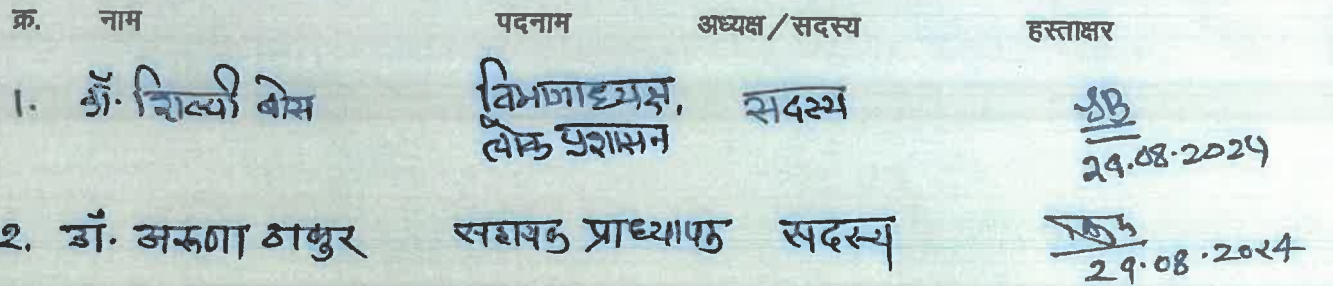 क्र. नाम पदनाम अध्यक्ष/सदस्य हस्ताक्षर
1. डॉ. शिल्पी बोस विभागाध्यक्ष, सदस्य SB
लोक प्रशासन 29.08.2024
2. डॉ. अरूणा ठाकुर सहायक प्राध्यापक सदस्य
29.08.2024